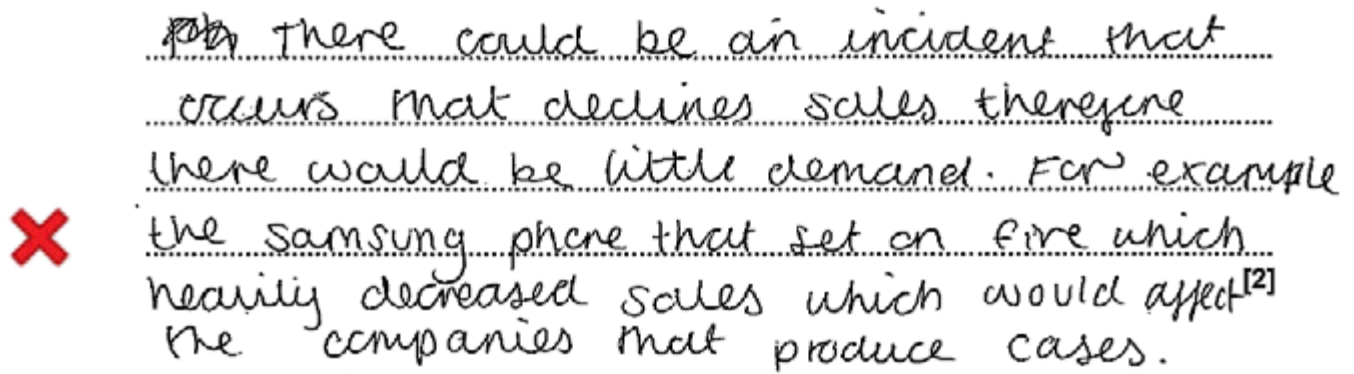 There could be an incident that
occurs that declines sales therefore
there would be little demand. For example
the samsung phone that set on fire which
heavily decreased sales which would affect [2]
the companies that produce cases.